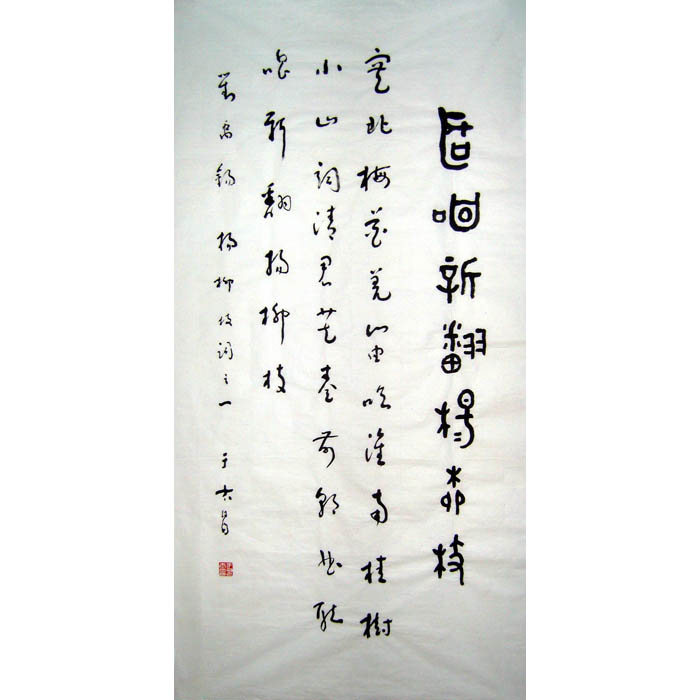 聽唱新翻楊柳枝
塞北梅花羌笛吹淮南桂樹
小山詞請君莫奏前朝曲聽
唱新翻楊柳枝
劉禹錫 楊柳枝詞之一 于